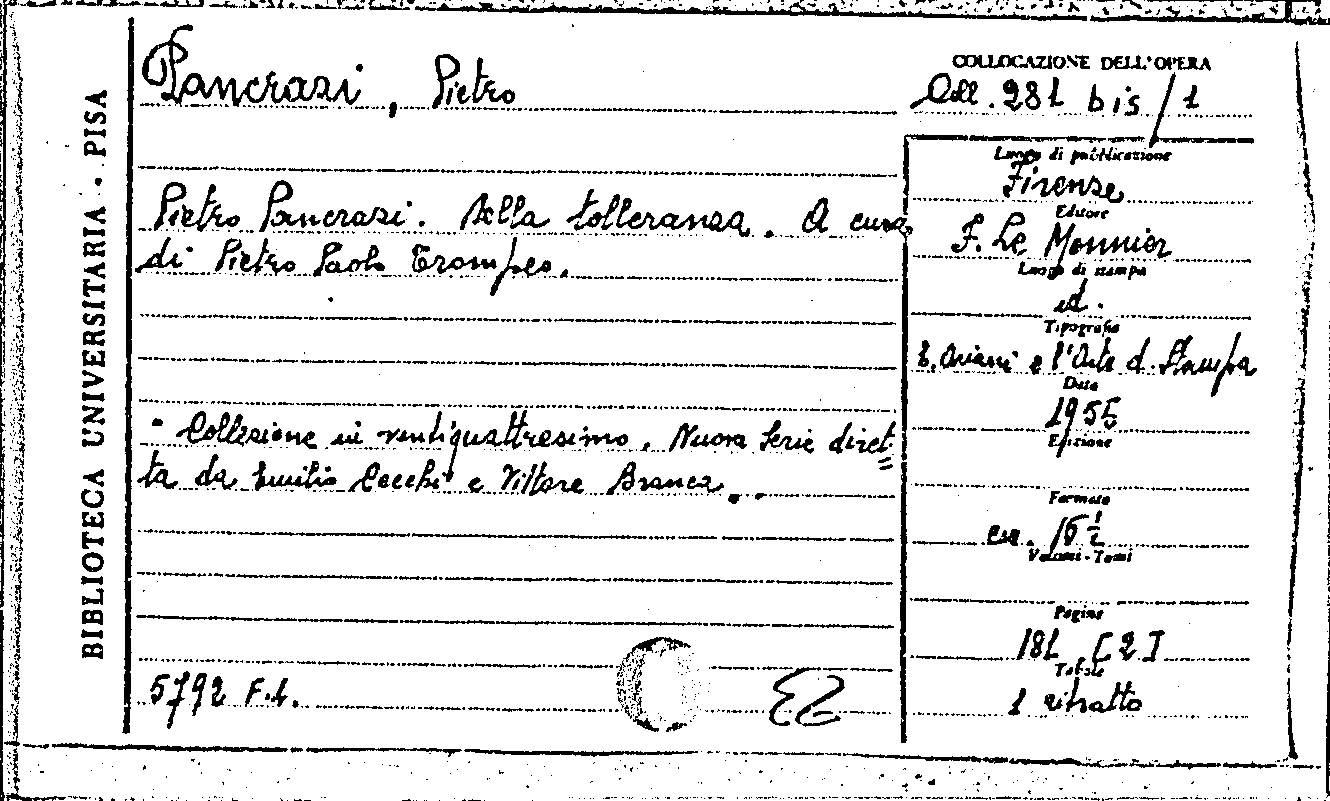 BIBLIOTECA UNIVERSITARIA - PISA
Pancrazi, Pietro
Pietro Pancrazi. Della tolleranza. A cura
di Pietro Paolo Trompeo.
" Collezione in ventiquattresimo. Nuova Serie diret=
ta da Emilio Cecchi e Vittore Branca. "
5792 F.L.
COLLOCAZIONE DELL'OPERA
Coll. 281 bis/1
Luogo di pubblicazione
Firenze
Editore
F. Le Monnier
Luogo di stampa
id.
Tipografia
E. Ariani e l'Arte d. Stampa
Data
1955
Edizione
Formato
cm. 16 ½
Volumi - Tomi
Pagine
181 [2]
Tavole
1 ritratto